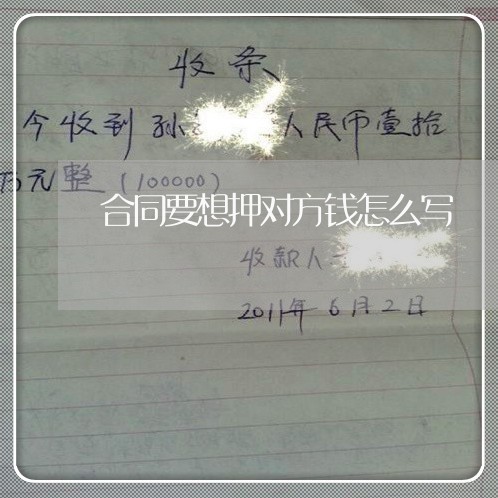 收条
今收到孙 人民币壹拾
万元整(100000)
合同要想押对方钱怎么写
收款人
2011年6月2日